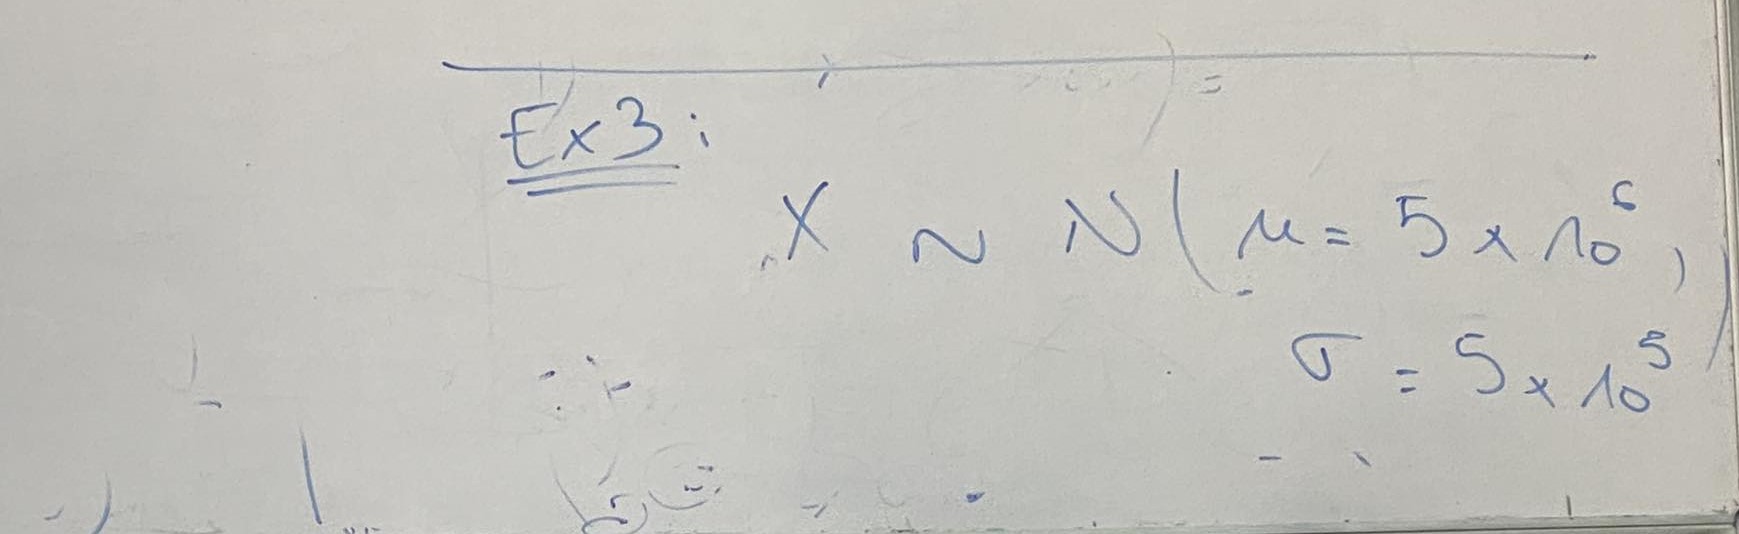 Ex3:
X ~ N(μ = 5 × 10⁶,
σ = 5 × 10⁵)